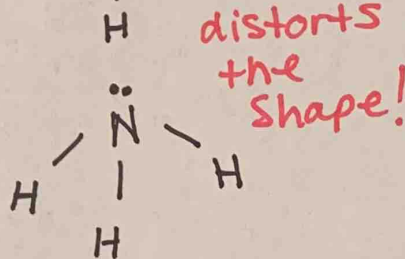 H
distorts
the
shape!
N
H
H
H